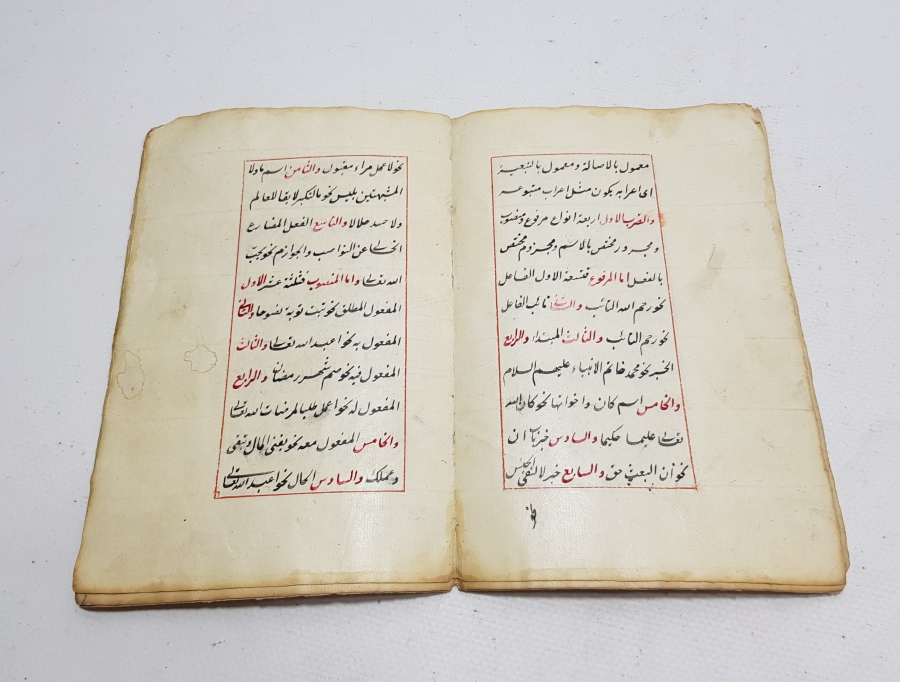 معمول بالاصالة ومعمول بالتبعية
اى اعرابه يكون مثل اعراب متبوعه
والضرب الاول اربعة انواع مرفوع ومنصوب
ومجرور مختص بالاسم ومجزوم مختص
بالفعل اما المرفوع فتسعة الاول الفاعل
نحو رحم الله التائب والثانى نائب الفاعل
نحو رحم التائب والثالث المبتدا والرابع
الخبر نحو محمد خاتم الانبياء عليهم السلام
والخامس اسم كان واخواتها نحو كان الله
تعالى عليما حكيما والسادس خبر باب ان
نحو ان البعث حق والسابع خبر لا لنفى الجنس
نحو
نحو لا عمل مراء مقبول والثامن اسم ما ولا
المشبهتين بليس نحو ما التكبر لايقا للعالم
ولا حسد حلالا والتاسع الفعل المضارع
الخالى عن النواصب والجوازم نحو يحب
الله تعالى واما المنصوب فثلثة عشر الاول
المفعول المطلق نحو تبت توبة نصوحا والثانى
المفعول به نحو اعبد الله تعالى والثالث
المفعول فيه نحو صم شهر رمضان والرابع
المفعول له نحو اعمل طلبا لمرضات الله تعالى
والخامس المفعول معه نحو يفنى المال وتبقى
وعملك والسادس الحال نحو اعبد الله تعالى